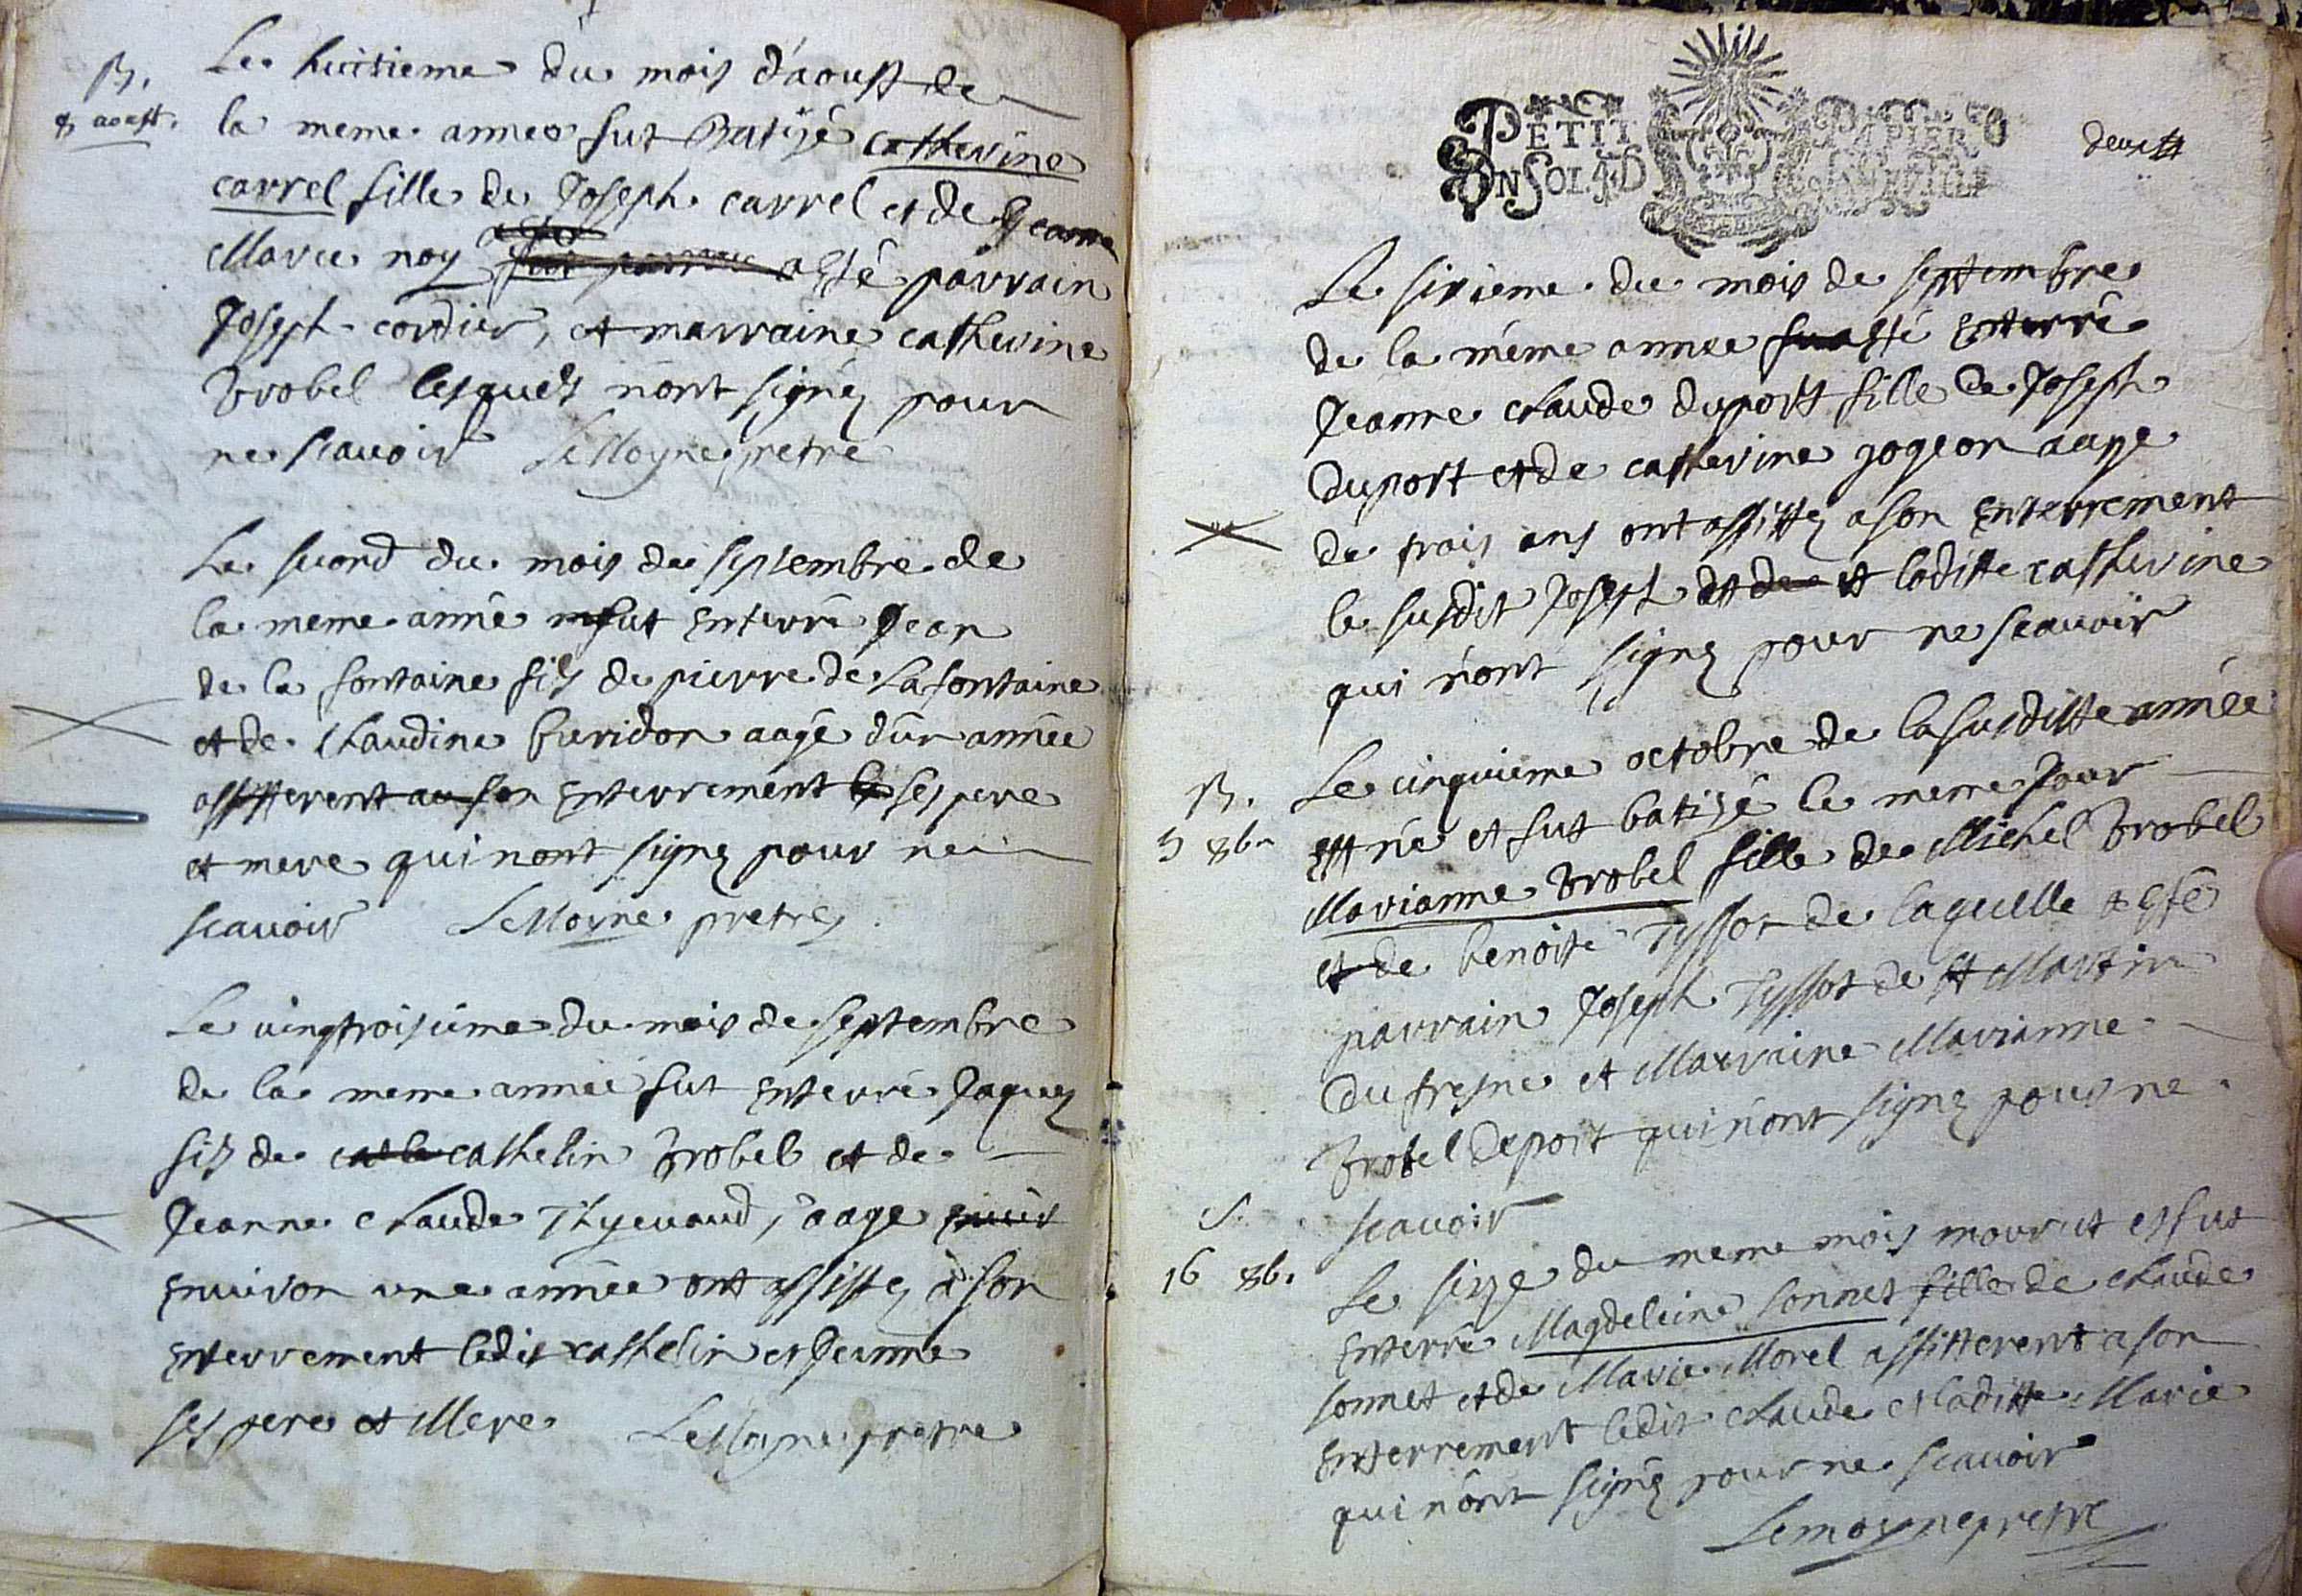 B.
8 aoust.
Le huitieme du mois d'aoust de
la meme annee fut Batizé catherine
carrel fille de Joseph carrel et de Jeanne
Marie noy a esté parrain
Joseph cordier, et marraine catherine
Brobel lesquels n'ont signéz pour
ne scauoir LeMoyne pretre
Le second du mois de septembre de
la meme année fut enterré Jean
de la fontaine fils de pierre de Lafontaine
et de Claudine buridon aagé d'ün année
assisterent a son enterrement ses pere
et mere qui nont signez pour ne
scauoir LeMoyne pretre
Le uingtroisieme du mois de septembre
de la meme année fut enterré Jaques
fils de cathelin Brobel et de
Jeanne Claude Theuenaud, aagé
enuiron une année ont assistez à son
enterrement ledit cathelin et Jeanne
ses pere et Mere LeMoyne pretre
PETIT PAPIER
UN SOL 4 D
Le sixieme du mois de septembre
de la méme annee a esté enterré
Jeanne claude duport fille de Joseph
Duport et de catherine gogeon aage
de trois ans ont assistez a son enterrement
le susdit Joseph et laditte catherine
qui n'ont signez pour ne scauoir
B.
5 8br
Le cinquieme octobre de la susditte année
est né et fut batizé le meme Jour
Marianne Brobel fille de Michel Brobel
et de benoite Tyssot de laquelle a esté
parrain Joseph Tyssot de st Martin
Du fresne et Marraine Marianne
Brobel Deport qui n'ont signez pour ne
scauoir
S.
16 8b.
Le sizze du meme mois mourut et fut
enterré Magdeleine sonnet fille de claude
sonnet et de Marie Morel assisterent a son
enterrement ledit claude et laditte Marie
qui n'ont signéz pour ne scauoir
Lemoyne pretre